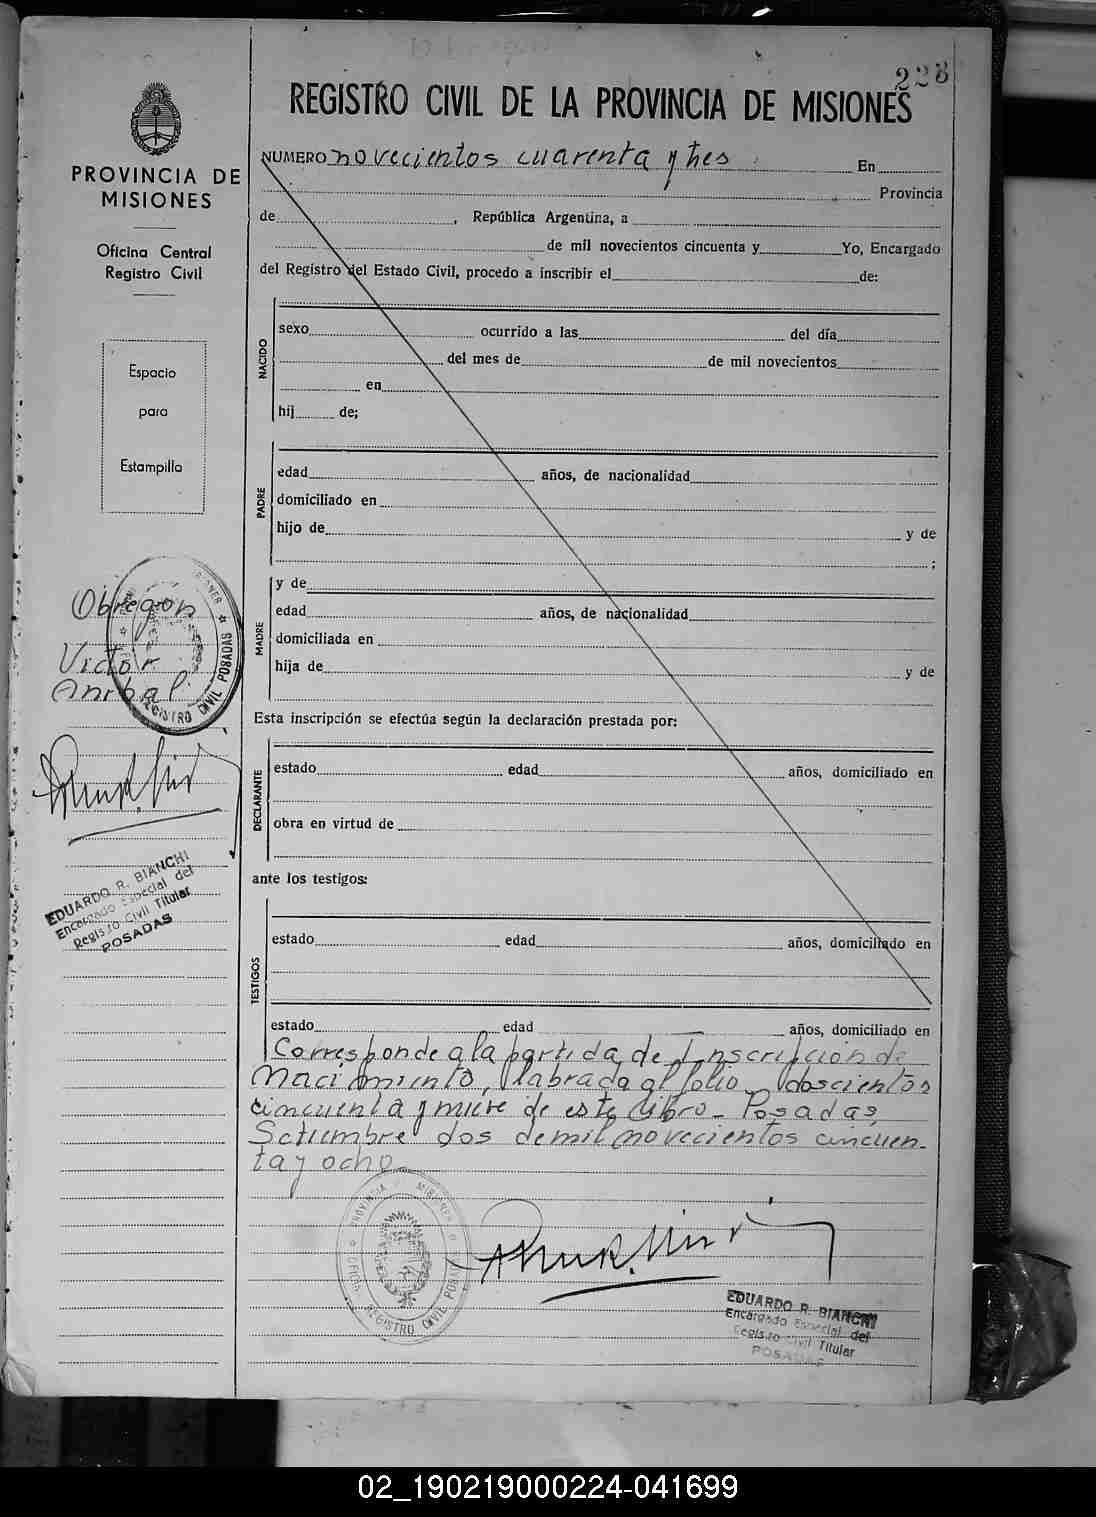 223
REGISTRO CIVIL DE LA PROVINCIA DE MISIONES
PROVINCIA DE
MISIONES
Oficina Central
Registro Civil
Espacio
para
Estampilla
Obregon
Victor
Anibal
REGISTRO CIVIL POSADAS
EDUARDO R. BIANCHI
Encargado Especial del
Registro Civil Titular
POSADAS
NUMERO novecientos cuarenta y tres En
Provincia
de , República Argentina, a
de mil novecientos cincuenta y Yo, Encargado
del Registro del Estado Civil, procedo a inscribir el de:
NACIDO
sexo ocurrido a las del día
del mes de de mil novecientos
en
hij de;
PADRE
edad años, de nacionalidad
domiciliado en
hijo de y de
;
MADRE
y de
edad años, de nacionalidad
domiciliada en
hija de y de
Esta inscripción se efectúa según la declaración prestada por:
DECLARANTE
estado edad años, domiciliado en
obra en virtud de
ante los testigos:
TESTIGOS
estado edad años, domiciliado en
estado edad años, domiciliado en
Corresponde a la partida de Inscripción de
Nacimiento, labrada al folio doscientos
cincuenta y nueve de este Libro - Posadas,
Setiembre dos de mil novecientos cincuen-
ta y ocho
PROVINCIA MISIONES
REGISTRO CIVIL POSADAS
EDUARDO R. BIANCHI
Encargado Especial del
Registro Civil Titular
POSADAS
02_190219000224-041699